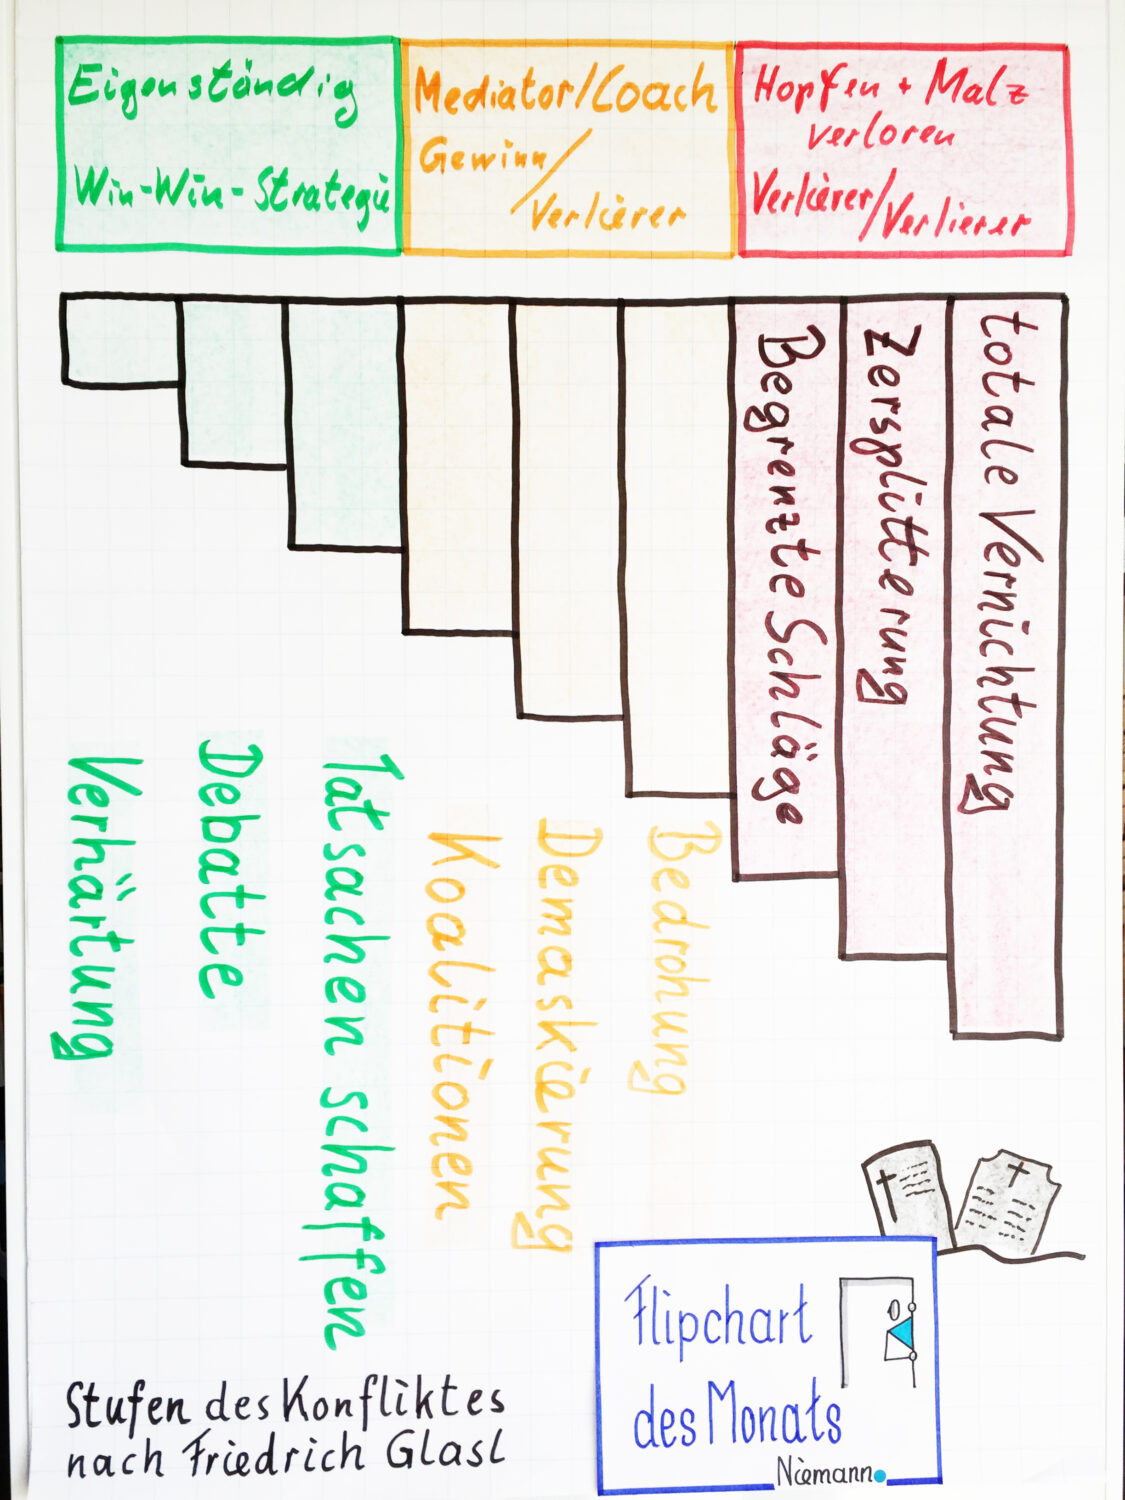 Eigenständig
Win-Win-Strategie
Mediator/Coach
Gewinn/
Verlierer
Hopfen + Malz
verloren
Verlierer/Verlierer
Verhärtung
Debatte
Tatsachen schaffen
Koalitionen
Demaskierung
Bedrohung
Begrenzte Schläge
Zersplitterung
totale Vernichtung
Stufen des Konfliktes
nach Friedrich Glasl
Flipchart
des Monats
Niemann